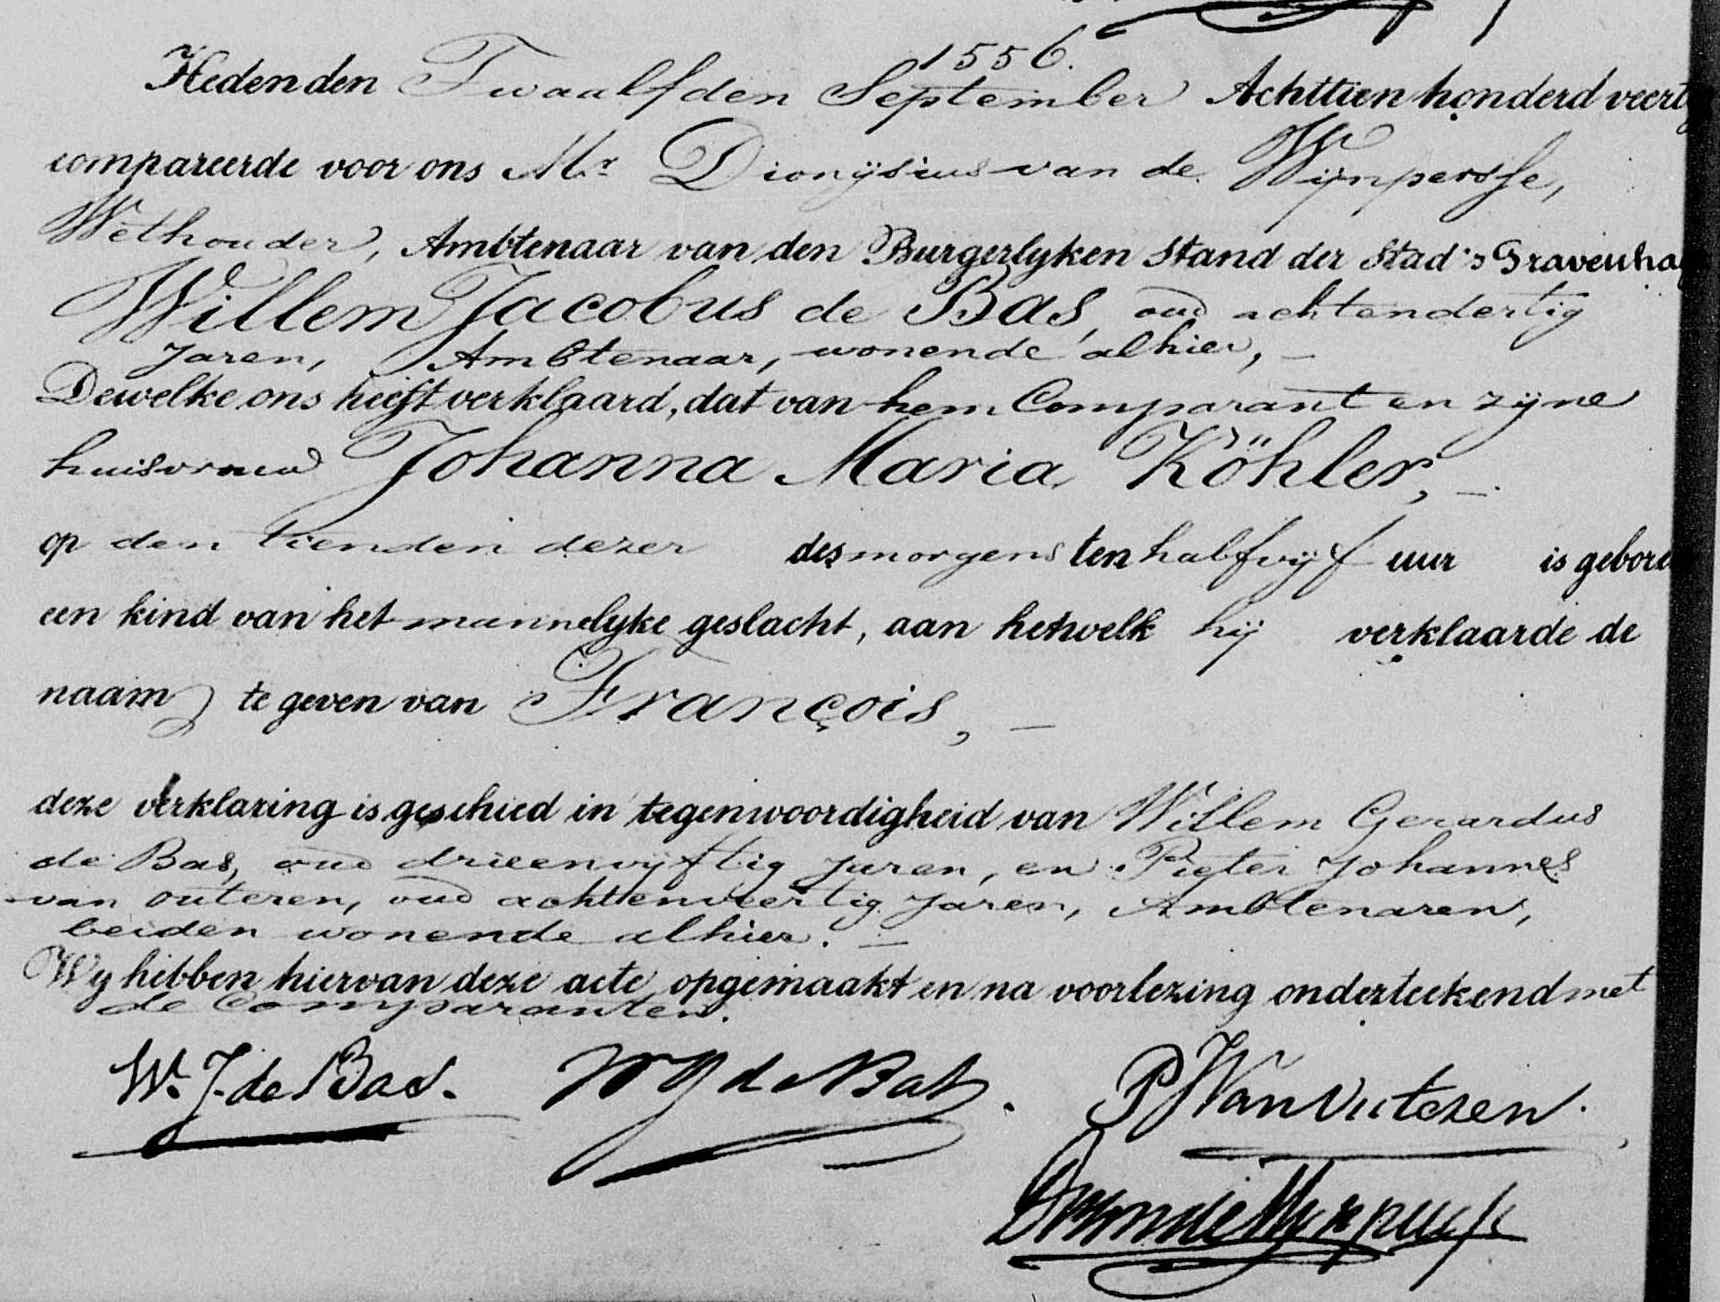 1556.
Heden den Twaalfden September Achttien honderd veert
compareerde voor ons Mr. Dionÿsius van de Wÿnpersse,
Wethouder, Ambtenaar van den Burgerlyken Stand der Stad 's Gravenha
Willem Jacobus de Bas, oud achtendertig
Jaren, Ambtenaar, wonende alhier, —
Dewelke ons heeft verklaard, dat van hem Comparant en zÿne
huisvrouw Johanna Maria Köhler, —
op den tienden dezer des morgens ten half vÿf uur is gebore
een kind van het mannelyke geslacht, aan hetwelk hÿ verklaarde de
naam te geven van François, —
deze verklaring is geschied in tegenwoordigheid van Willem Gerardus
de Bas, oud drieenvÿftig Jaren, en Pieter Johannes
van Outeren, oud achtenveertig Jaren, Ambtenaren,
beiden wonende alhier. —
Wy hebben hiervan deze acte opgemaakt en na voorlezing onderteekend met
de Comparanten.
W. J. de Bas. W G de Bas. P J Van Outeren.